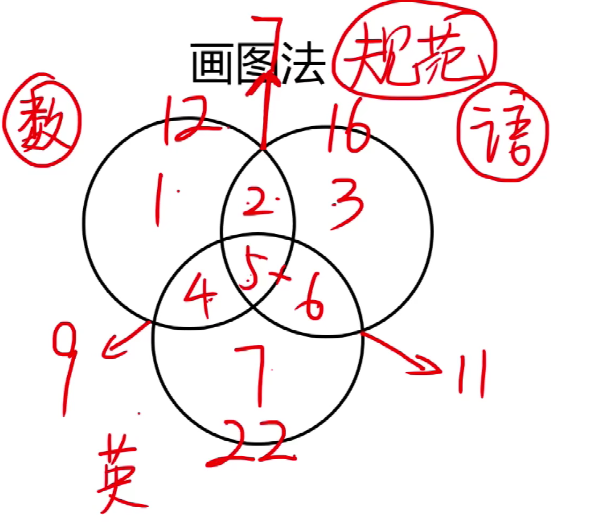 7
画图法 规范
数 12 16 语
1 2 3
4 5 6
9 7 11
22
英